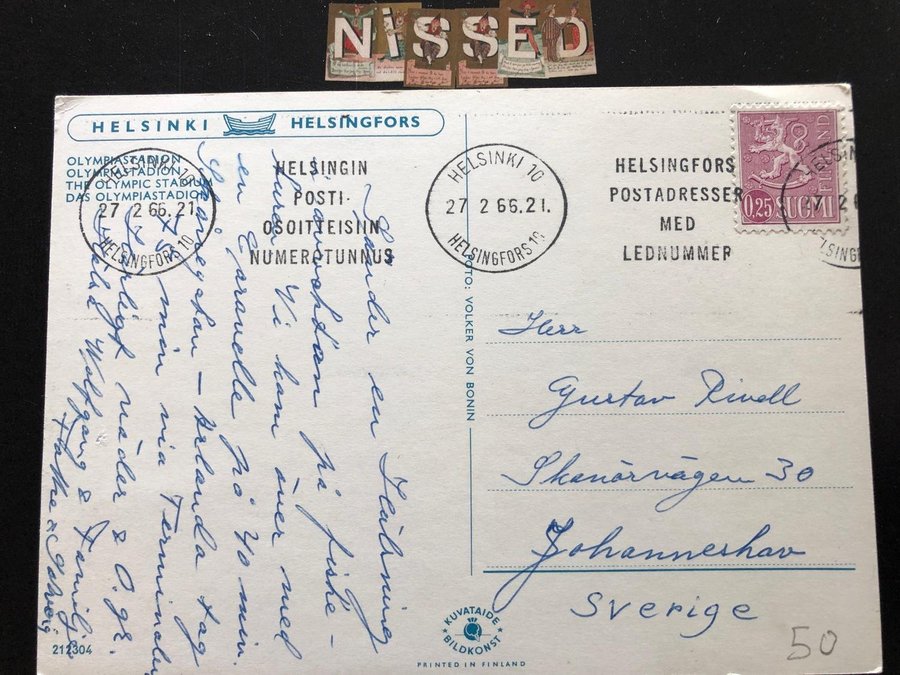 NISSED
HELSINKI HELSINGFORS
OLYMPIASTADION
OLYMPIASTADION
THE OLYMPIC STADIUM
DAS OLYMPIASTADION
HELSINKI 10
27 2 66. 21.
HELSINGFORS 10
HELSINGIN
POSTI-
OSOITTEISIIN
NUMEROTUNNUS
HELSINKI 10
27 2 66. 21.
HELSINGFORS 10
HELSINGFORS
POSTADRESSER
MED
LEDNUMMER
0,25 SUOMI
FINLAND
HELSINKI
27 2 6
HELSINGF
Sänder en Hälsning
på fiske-
tur. Vi kom över med
en Caravelle på 40 min.
Arlanda tog
min via Terminalen
Härligt väder & 0 gr.
Wolfgang & Familj
FOTO: VOLKER VON BONIN
Herr
Gustav Rivell
Skanörvägen 30
Johanneshov
Sverige
50
212304
KUVATAIDE
BILDKONST
PRINTED IN FINLAND